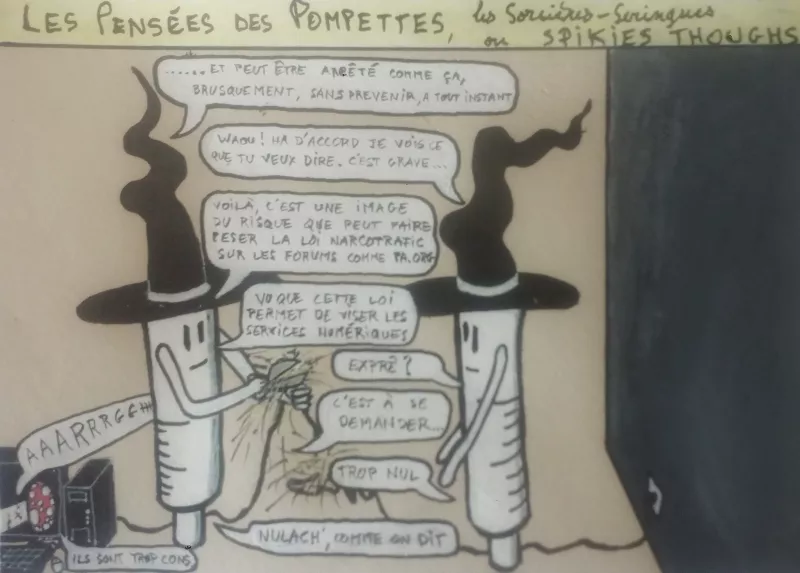 LES PENSÉES DES POMPETTES, les Sorcières-Seringues
ou SPIKIES THOUGHS
......ET PEUT ÊTRE ARRÊTÉ COMME ÇA,
BRUSQUEMENT, SANS PREVENIR, A TOUT INSTANT
WAOU! HA D'ACCORD JE VOIS CE
QUE TU VEUX DIRE. C'EST GRAVE...
VOILÀ, C'EST UNE IMAGE
DU RISQUE QUE PEUT FAIRE
PESER LA LOI NARCOTRAFIC
SUR LES FORUMS COMME PA.ORG
VU QUE CETTE LOI
PERMET DE VISER LES
SERVICES NUMÉRIQUES
EXPRÊ?
C'EST À SE
DEMANDER...
TROP NUL
AAARRRGGHH
NULACH', COMME ON DIT
ILS SONT TROP CONS